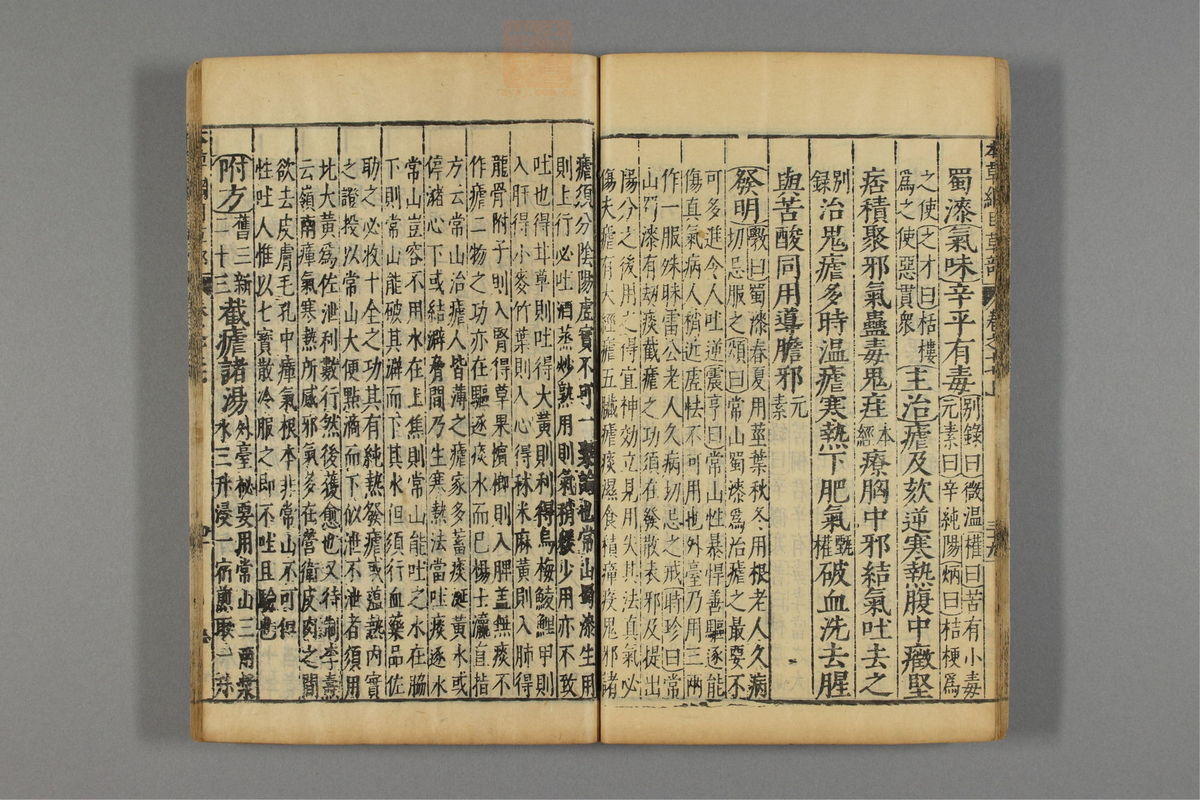 蜀漆氣味辛平有毒別錄曰微温權曰苦有小毒元素曰辛純陽炳曰桔梗爲
之使之才曰栝樓爲之使惡貫衆主治瘧及欬逆寒熱腹中癥堅
痞積聚邪氣蠱毒鬼疰本經療胸中邪結氣吐去之
別錄治鬼瘧多時温瘧寒熱下肥氣甄權破血洗去腥
與苦酸同用導膽邪元素
發明斅曰蜀漆春夏用莖葉秋冬用根老人久病
切忌服之頌曰常山蜀漆爲治瘧之最要不
可多進令人吐逆震亨曰常山性暴悍善驅逐能
傷真氣病人稍近虛怯不可用也外臺乃用三兩
作一服殊昧雷公老人久病切忌之戒時珍曰常
山蜀漆有劫痰截瘧之功須在發散表邪及提出
陽分之後用之得宜神効立見用失其法真氣必
傷夫瘧有六經瘧五臟瘧痰濕食積瘴疫鬼邪諸
瘧須分陰陽虛實不可一槩論也常山蜀漆生用
則上行必吐酒蒸炒熟用則氣稍緩少用亦不致
吐也得甘草則吐得大黃則利得烏梅鯪鯉甲則
入肝得小麥竹葉則入心得秫米麻黃則入肺得
龍骨附子則入腎得草果檳榔則入脾盖無痰不
作瘧二物之功亦在驅逐痰水而已楊士瀛直指
方云常山治瘧人皆薄之瘧家多蓄痰涎黃水或
停瀦心下或結澼脅間乃生寒熱法當吐痰逐水
常山豈容不用水在上焦則常山能吐之水在脇
下則常山能破其澼而下其水但須行血藥品佐
助之必收十全之功其有純熱發瘧或蘊熱內實
之證投以常山大便點滴而下似泄不泄者須用
北大黃爲佐泄利數行然後獲愈也又待制李燾
云嶺南瘴氣寒熱所感邪氣多在營衛皮肉之間
欲去皮膚毛孔中瘴氣根本非常山不可但
性吐人惟以七寶散冷服之即不吐且驗也
附方舊三新二十三截瘧諸湯外臺秘要用常山三兩漿
水三升浸一宿煎取一升